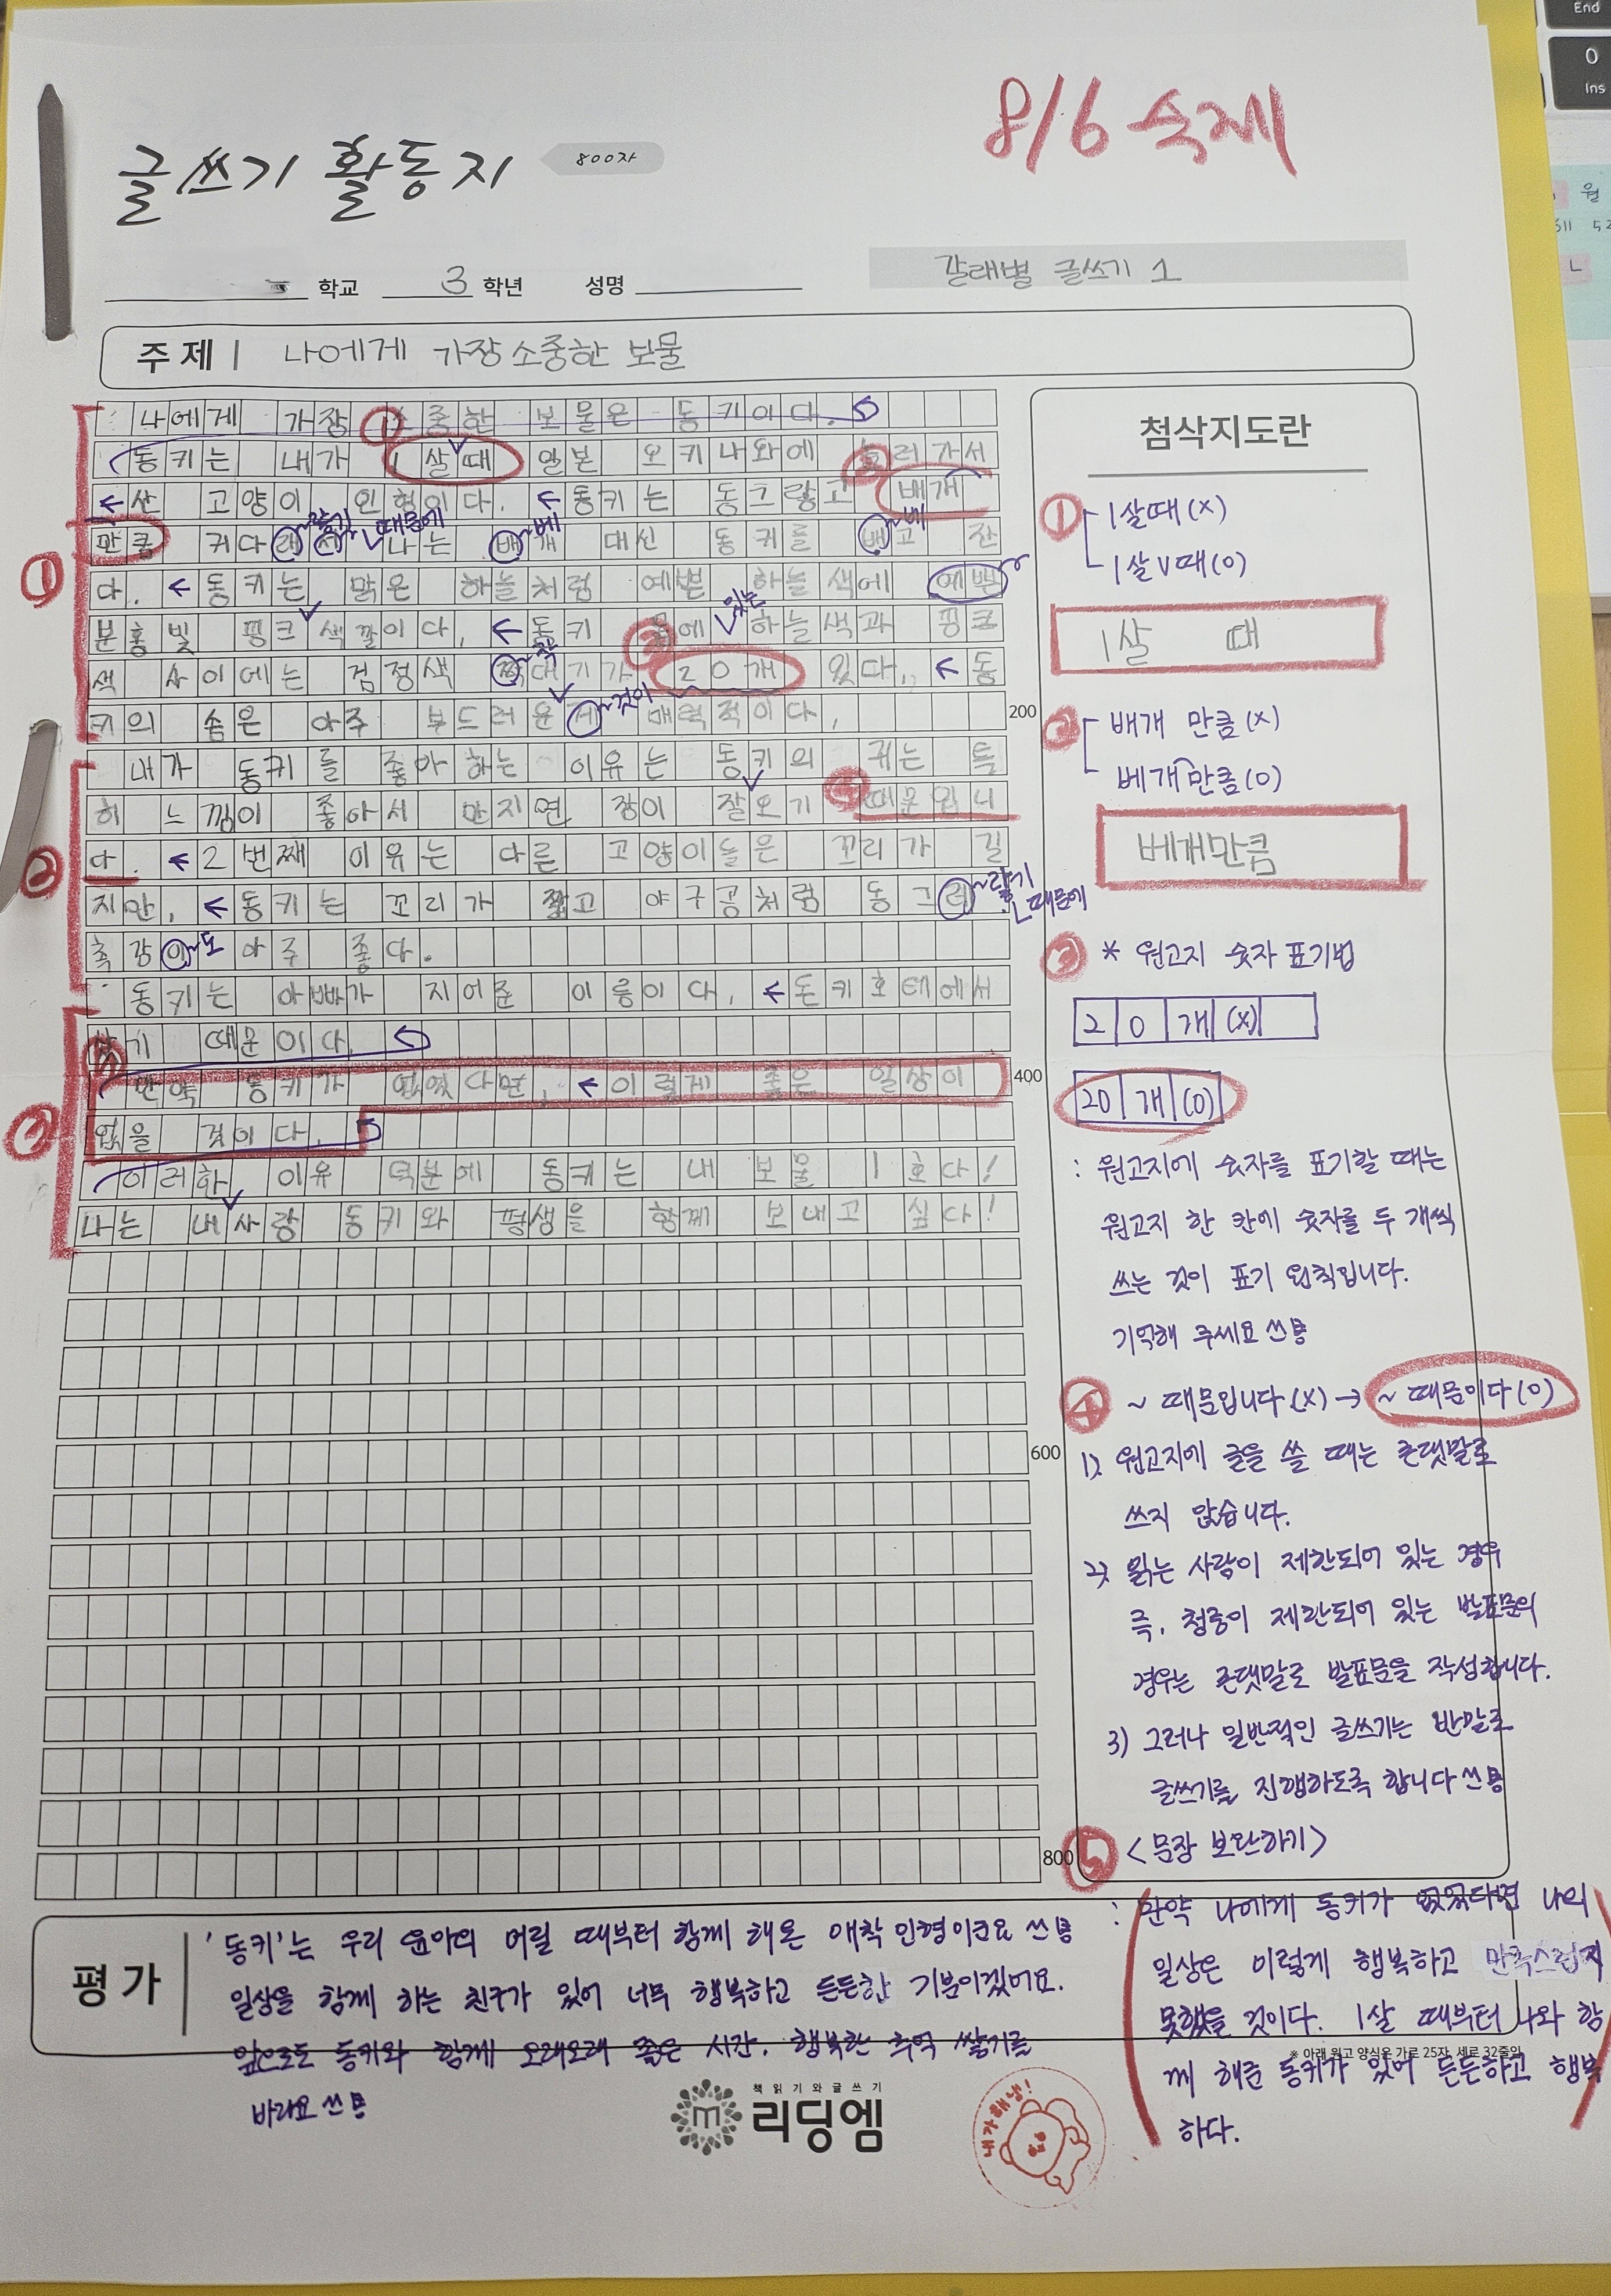 8/6 숙제
글쓰기 활동지 800자
학교 3 학년 성명
갈래별 글쓰기 1
주제 | 나에게 가장 소중한 보물
나에게 가장 소중한 보물은 동키이다.
동키는 내가 1살때 일본 오키나와에 놀러가서
산 고양이 인형이다. 동키는 동그랗고 배개
만큼 커다래서 나는 배개 대신 동키를 배고 잔
~랗기 때문에 ~베 ~베
다. 동키는 맑은 하늘처럼 예쁜 하늘색에 예쁜
분홍빛 핑크색깔이다. 동키 몸에 하늘색과 핑크
있는
색 사이에는 검정색 짝대기가 20개 있다. 동
~작
키의 솜은 아주 부드러운게 매력적이다.
~것이
200
내가 동키를 좋아하는 이유는 동키의 귀는 특
히 느낌이 좋아서 만지면 잠이 잘오기 때문입니
다. 2번째 이유는 다른 고양이들은 꼬리가 길
지만, 동키는 꼬리가 짧고 야구공처럼 동그래
~랗기 때문에
촉감이 아주 좋다.
~도
동키는 아빠가 지어준 이름이다. 돈키호테에서
기 때문이다.
만약 동키가 없었다면, 이렇게 좋은 일상이
400
없을 것이다.
이러한 이유 덕분에 동키는 내 보물 1호다!
나는 내사랑 동키와 평생을 함께 보내고 싶다!
600
800
첨삭지도란
① 1살때(X)
1살∨때(O)
1살 때
② 배개 만큼(X)
베개만큼(O)
베개만큼
③ * 원고지 숫자 표기법
2 0 개 (X)
20 개 (O)
: 원고지에 숫자를 표기할 때는
원고지 한 칸에 숫자를 두 개씩
쓰는 것이 표기 원칙입니다.
기억해 주세요 쓰용
④ ~ 때문입니다(X) → ~ 때문이다(O)
1) 원고지에 글을 쓸 때는 존댓말로
쓰지 않습니다.
2) 읽는 사람이 제한되어 있는 경우
즉, 청중이 제한되어 있는 발표문의
경우는 존댓말로 발표문을 작성합니다.
3) 그러나 일반적인 글쓰기는 반말로
글쓰기를 진행하도록 합니다 쓰용
⑤ <문장 보완하기>
: 만약 나에게 동키가 없었다면 나의
일상은 이렇게 행복하고 만족스럽지
못했을 것이다. 1살 때부터 나와 함
께 해준 동키가 있어 든든하고 행복
하다.
※ 아래 원고 양식은 가로 25자, 세로 32줄임
평가
'동키'는 우리 윤아의 어릴 때부터 함께 해온 애착 인형이군요 쓰용
일상을 함께 하는 친구가 있어 너무 행복하고 든든한 기분이겠어요.
앞으로도 동키와 함께 오래오래 좋은 시간. 행복한 추억 쌓기를
바라요 쓰용
책읽기와글쓰기
리딩엠
내가해냄!
End
0
Ins
월